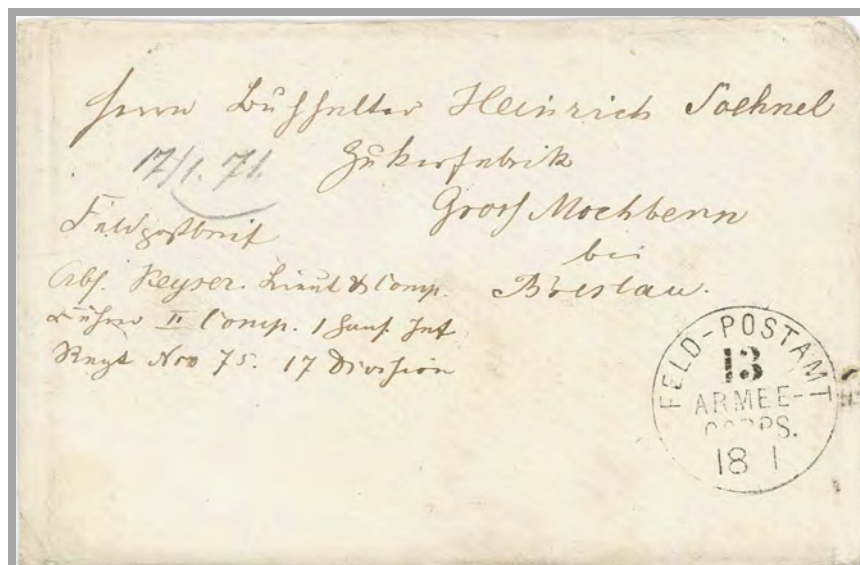 Herrn Buchhalter Heinrich Soehnel
17/1. 71.
Zukerfabrik
Gross Mochbern
Feldpostbrief
bei
Abs. Keyser. Lieut & Comp.
Breslau.
Führer II Comp. 1 Hans. Inf
Regt Nro 75. 17 Division
FELD-POSTAMT
13
ARMEE-
CORPS.
18 1